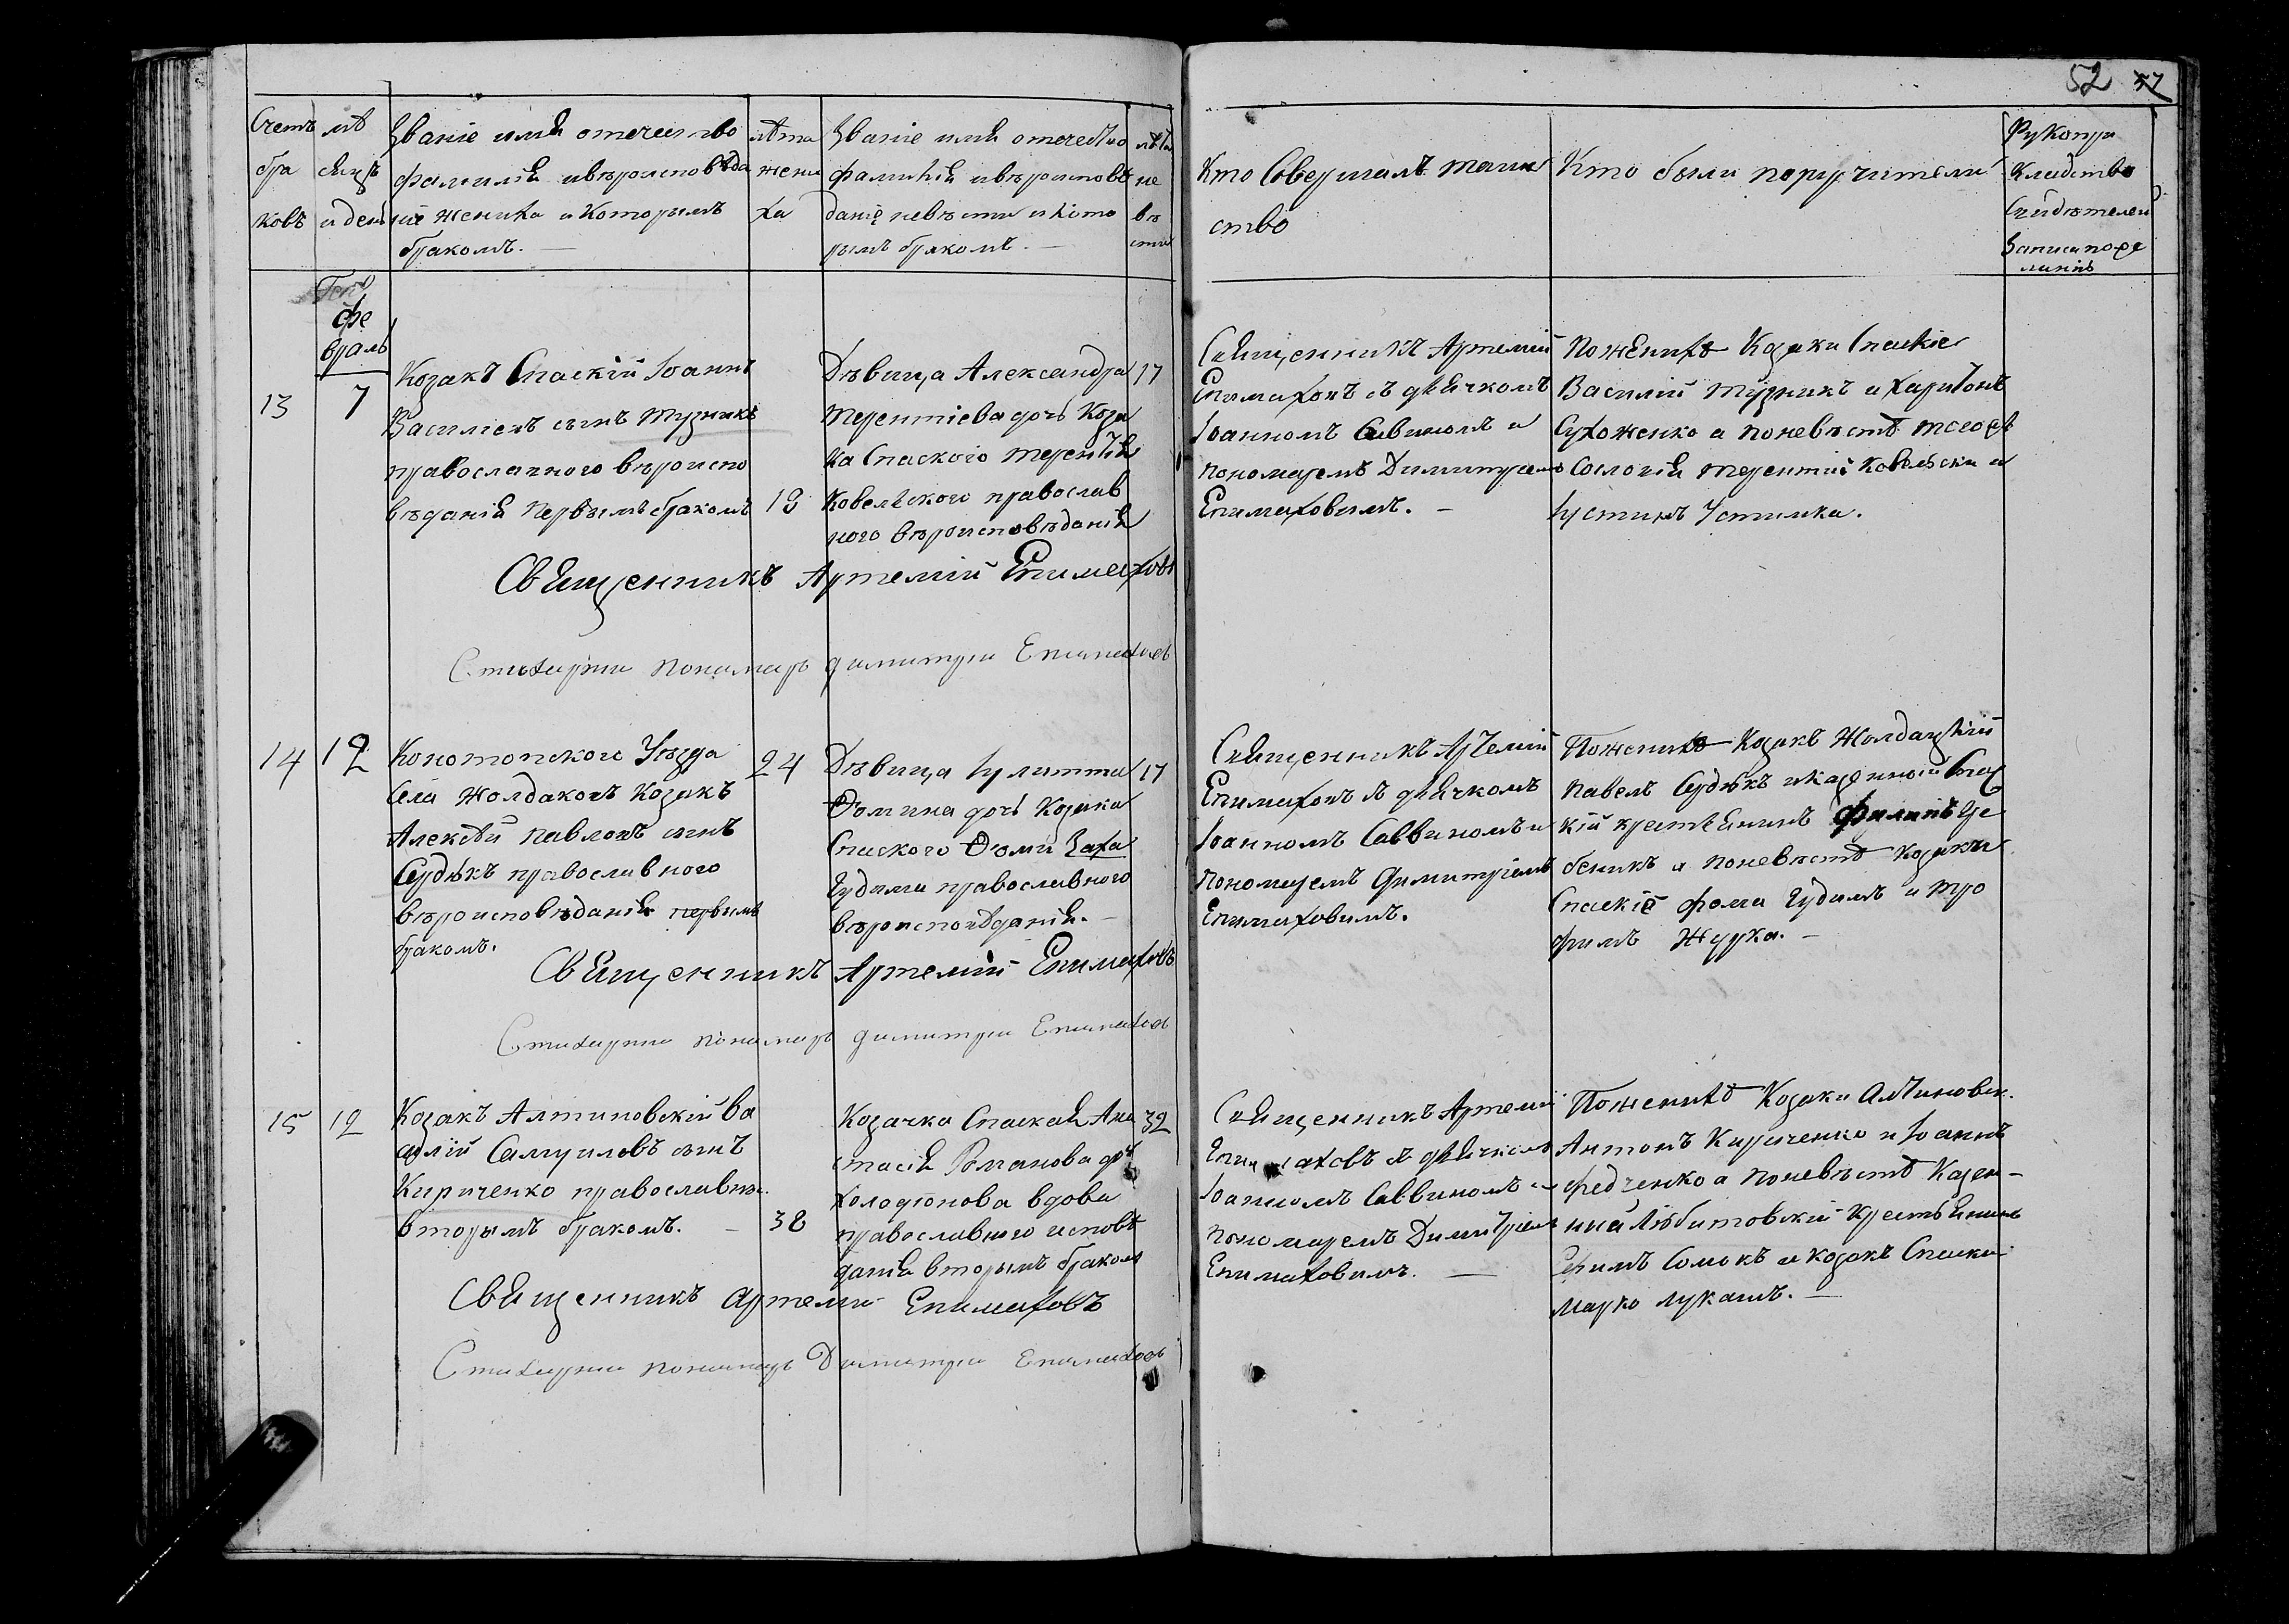 52
Счетъ бра ковъ
мѣ сяцъ и день
Званіе имя отечество
фамилія и вѣроисповѣда
ніе жениха и которымъ
бракомъ. —
лѣта жени ха
Званіе имя отечество
фамилія и вѣроисповѣ
даніе невѣсти и кото
рымъ бракомъ. —
лѣта не вѣ сти
Кто Совершалъ таин
ство
Кто были поручители
Рукопри
кладство
Свидѣтелей
Записи по же
ланію
фе
враль
13
7
Козакъ Спаскій Іоаннъ
Василіевъ сынъ Тузникъ
православного вѣроиспо
вѣданія первымъ бракомъ
19
Дѣвица Александра
Терентіева дочь Коза
ка Спаского Терентія
Ковельского православ
ного вѣроисповѣданія
17
Священникъ Артемій
Епимаховъ съ дячкомъ
Іоанномъ Савиномъ и
пономаремъ Димитріемъ
Епимаховымъ. —
По женихѣ Козаки Спаскіе
Василій Тузникъ и Харитонъ
Сухоженко а по невѣстѣ того же
Сословія Терентій Ковельски и
Іустинъ Устимка.
Священникъ Артемій Епимаховъ
Стихарни пономарь димитрии Епимахов
14
12
Конотопского Уѣзда
Села Жолдаковъ Козакъ
Алексѣй Павловъ сынъ
Сердюкъ православного
вѣроисповѣданія первымъ
бракомъ.
24
Дѣвица Іулитта
Ѳомина дочь Козака
Спаского Ѳомы Заха
Гудыма православного
вѣроисповѣданія. —
17
Священникъ Артемій
Епимаховъ съ дячкомъ
Іоанномъ Саввиномъ и
пономаремъ Димитріемъ
Епимаховымъ.
По женихѣ Козакъ Жолдацкій
Павелъ Сердюкъ и казенный Спас
кій крестьянинъ Филипъ
беникъ а по невѣстѣ козаки
Спаскіе Фома Гудымъ и Тро
фимъ Журка. —
Священникъ Артемій Епимаховъ
Стихарнии пономарь димитрии Епимахов
15
12
Козакъ Алтиновскій Ва
силій Самуиловъ сынъ
Кириченко православны.
вторымъ бракомъ. —
38
Козачка Спаская Ана
стасія Романова доч
Холодюнова вдова
православного исповѣ
данія вторымъ браком
32
Священникъ Артемій
Епимаховъ съ дячкомъ
Іоанномъ Саввиномъ и
пономаремъ Димитріем
Епимаховымъ. —
По женихѣ Козаки Алтиновск.
Антонъ Кириченко и Іоаннъ
Федченко а по невѣстѣ Казен-
ный Любитовскій Крестьянинъ
Ефимъ Сомокъ и козакъ Спаски
Марко Лукашъ. —
Священникъ Артемій Епимаховъ
Стихарнии пономарь Димитрии Епимахов